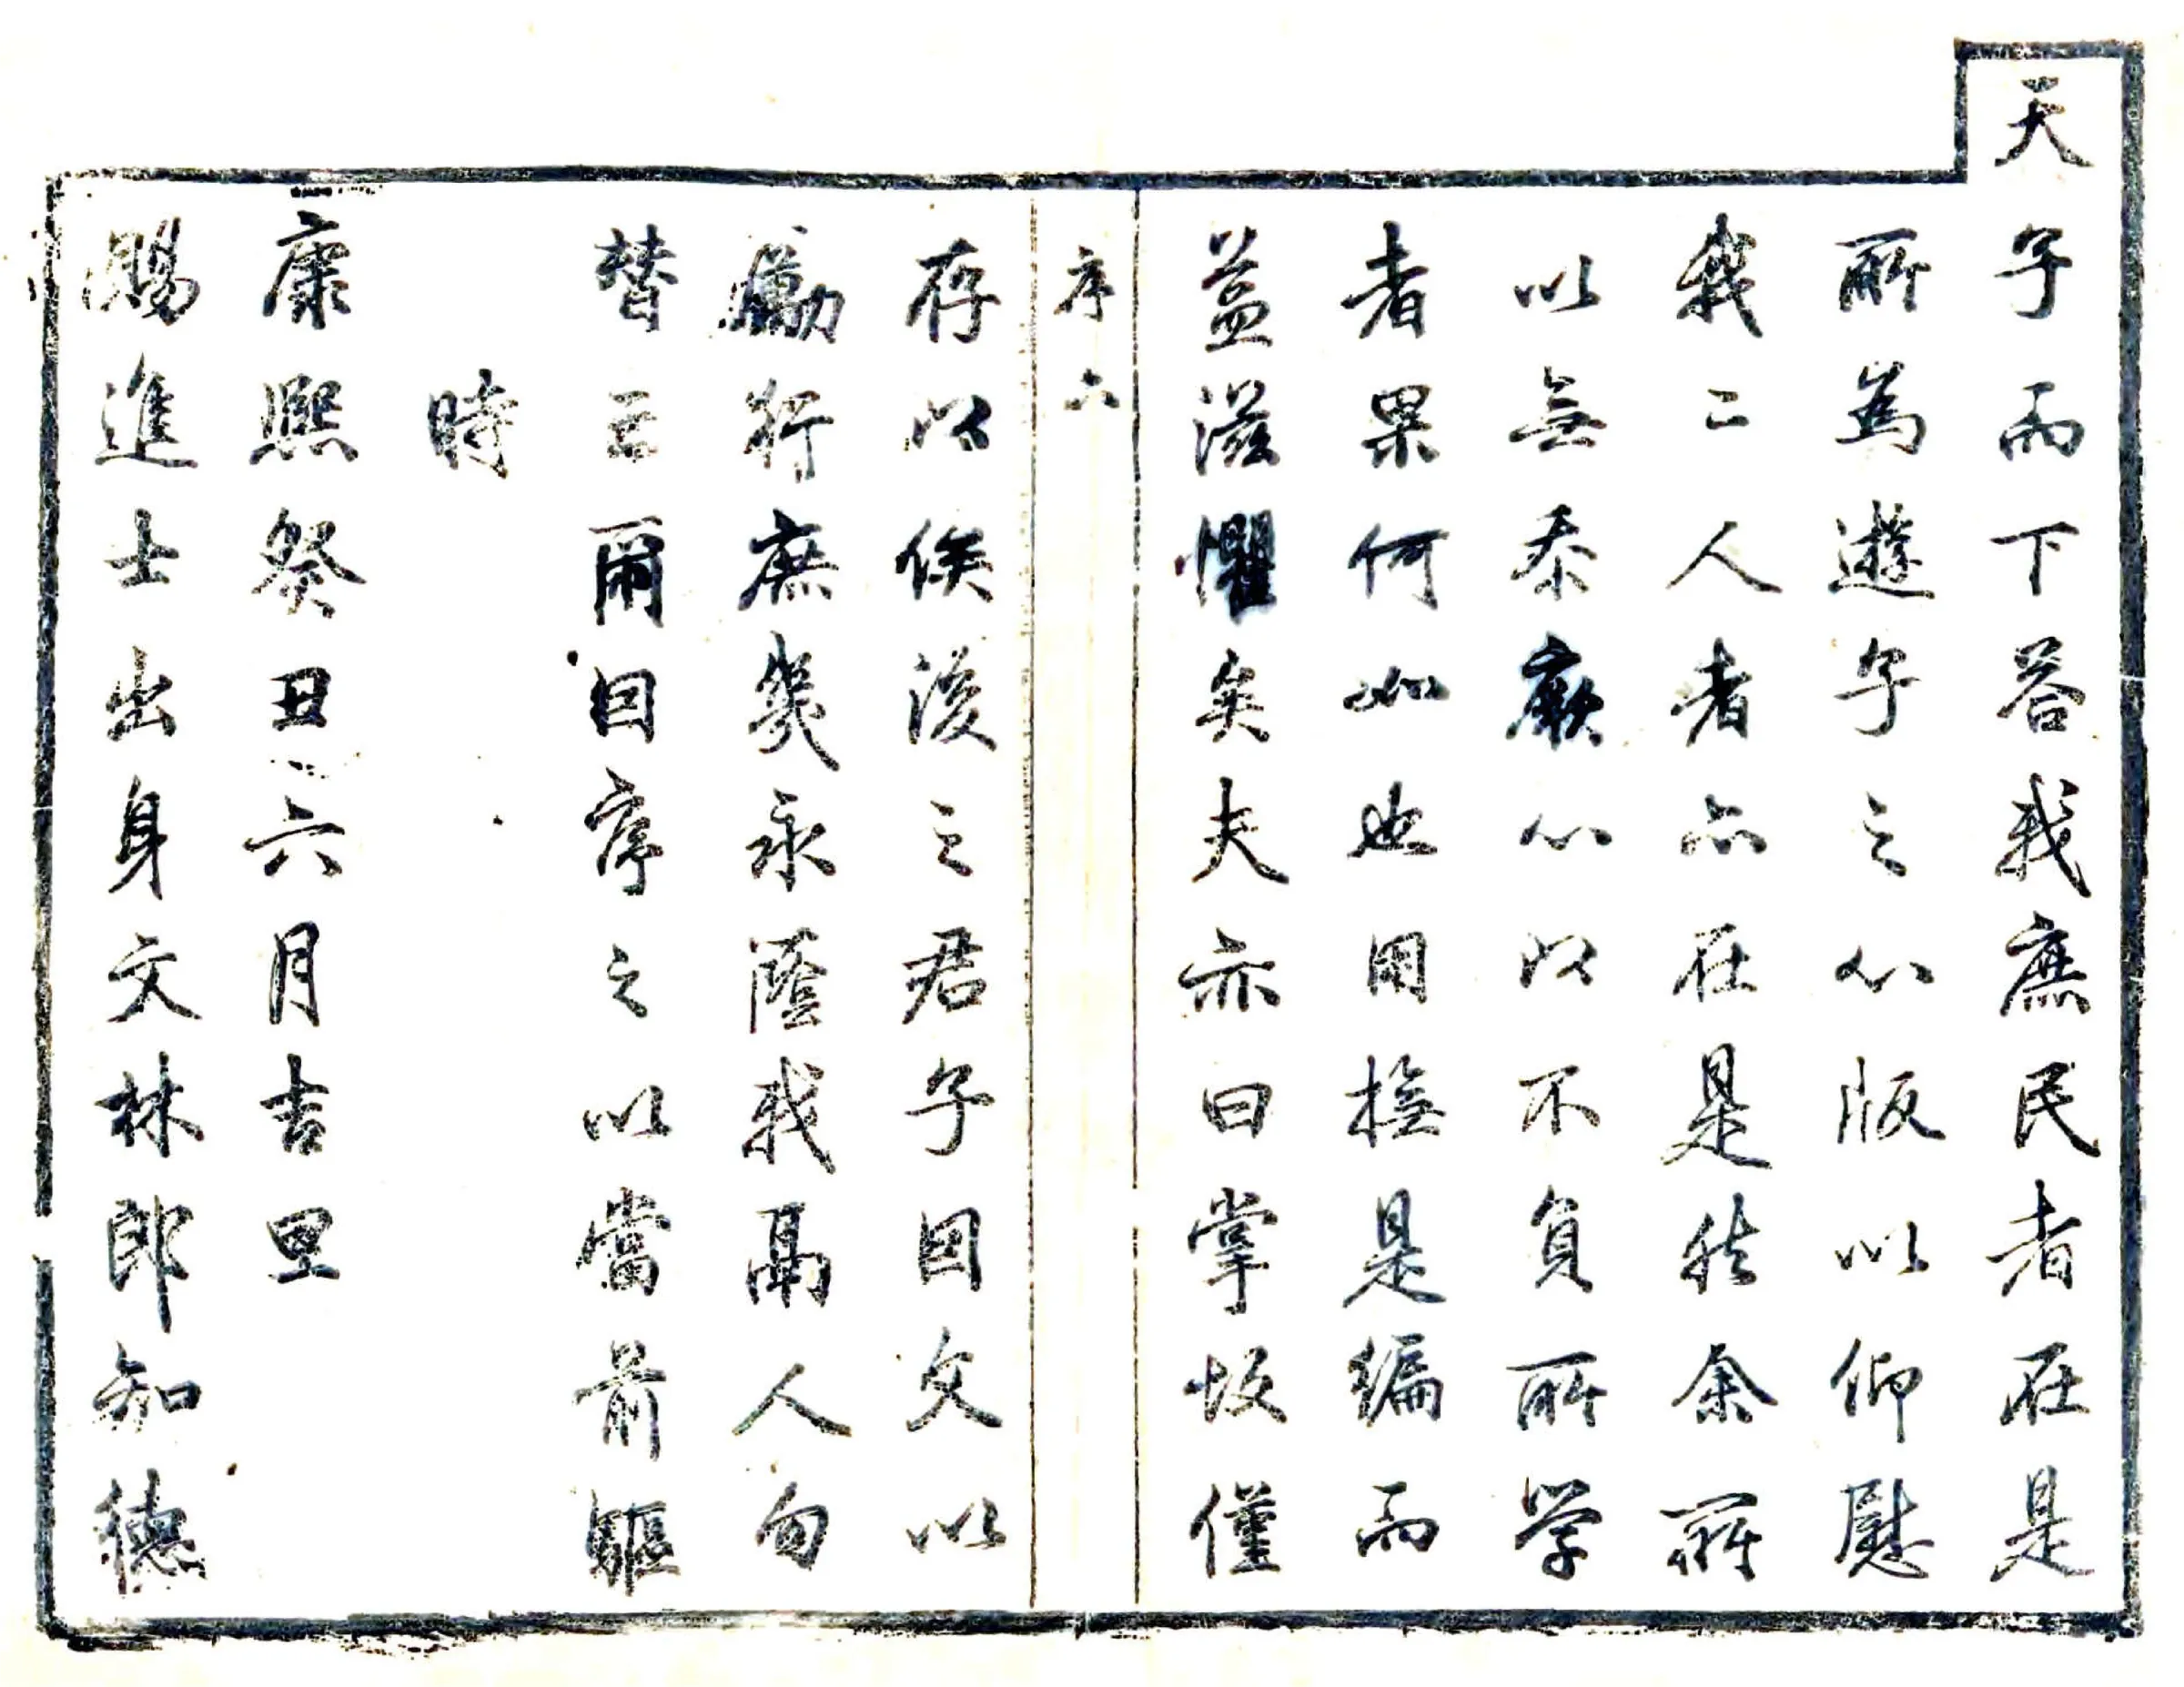 天子而下答我庶民者在是
所為遊子之心版以仰慰
我二人者亦在是然余所
以無忝厥心以不負所學
者果何如也用撫是編而
益滋懼矣夫亦曰掌故僅
序 六
存以俟後之君子因文以
勵行庶幾永蔭我鬲人勿
替云爾因序之以當前驅
時
康熙癸丑六月吉旦
賜進士出身文林郎知德